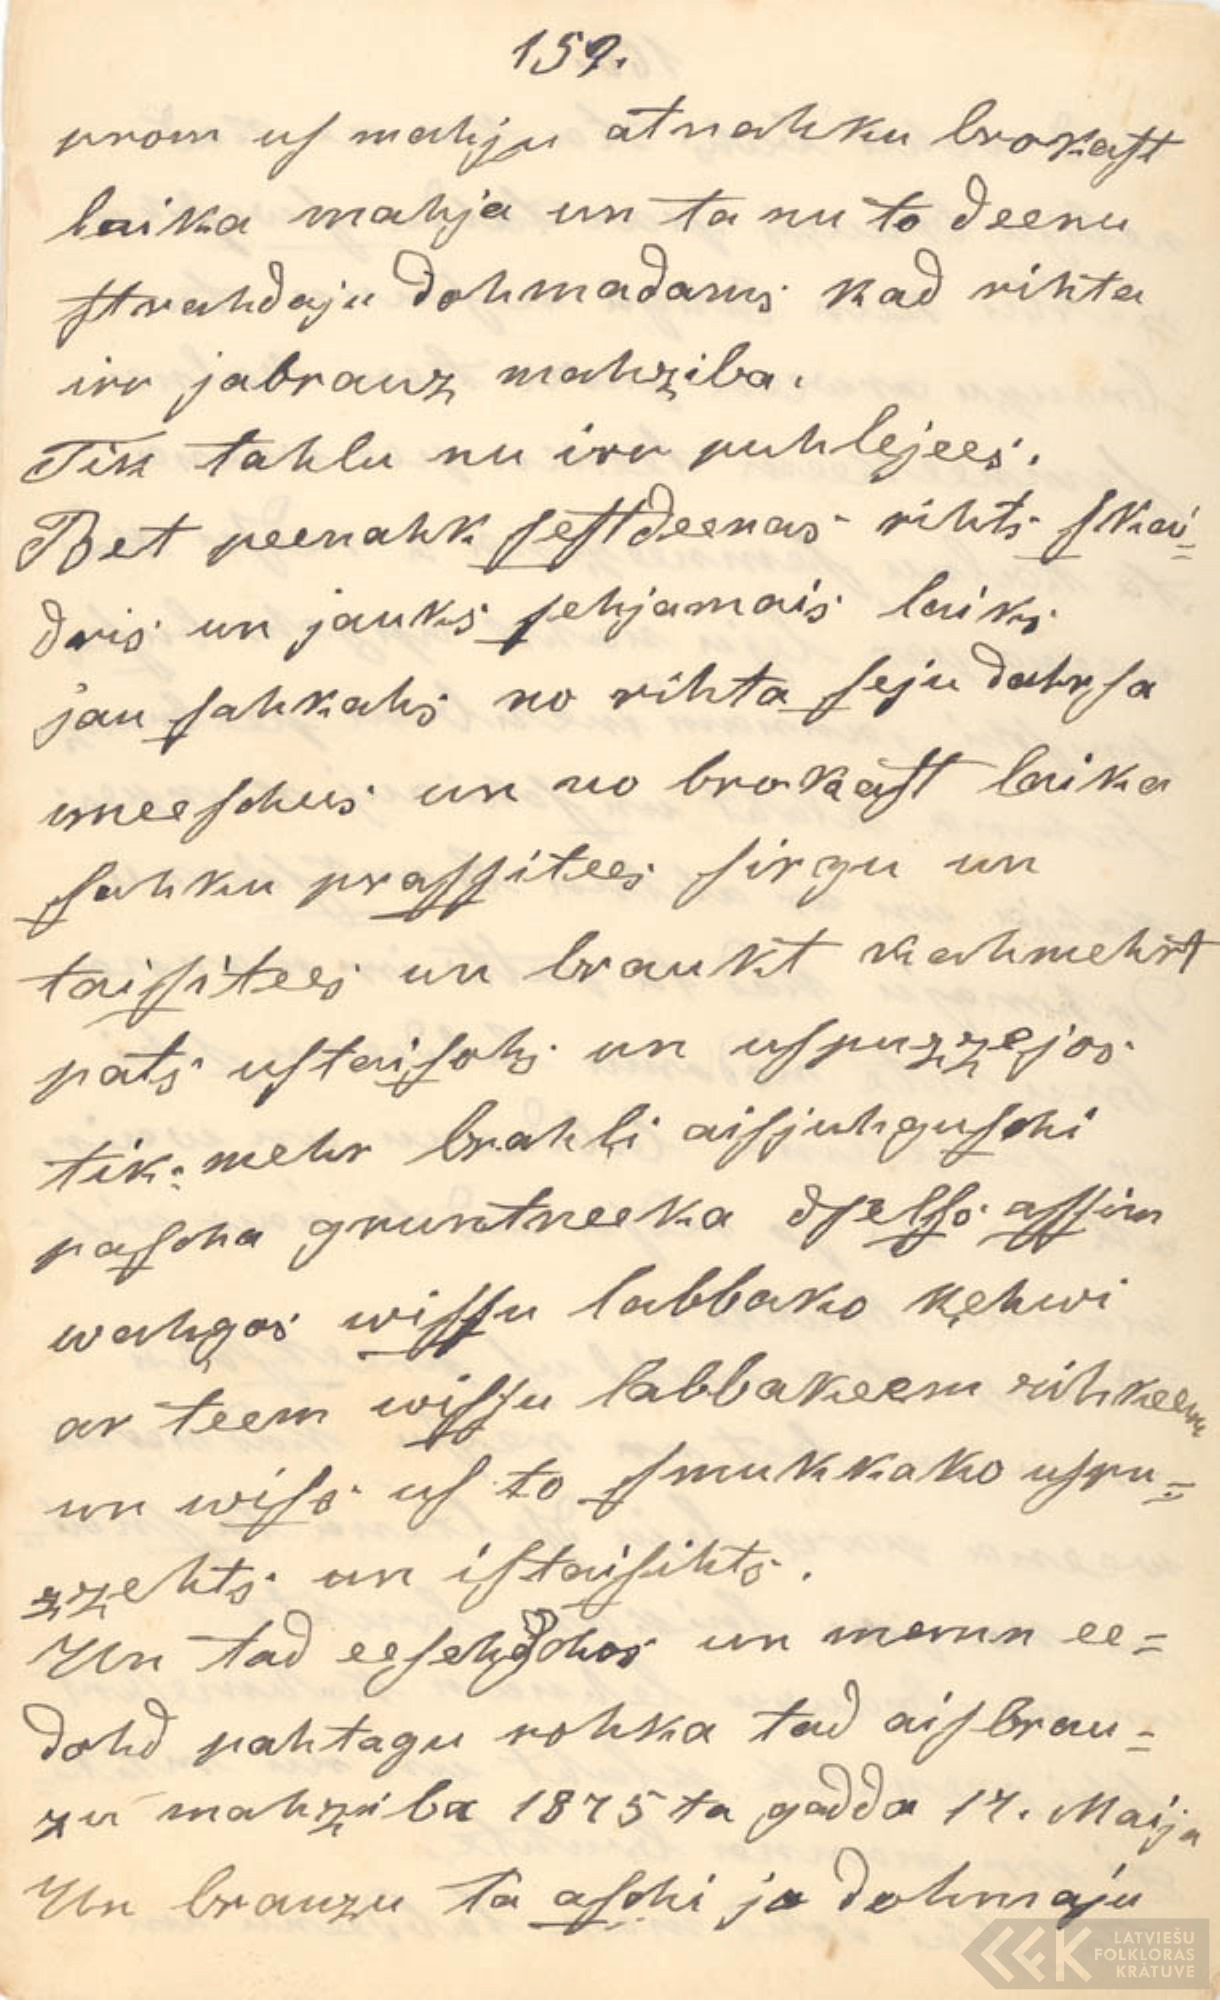 159.
prom uſ mahju atnahku brokaſt
laika mahja un ta nu to deenu
ſtrahdaju dohmadams kad rihta
irr jabrauz mahziba.
Tik tahlu nu irr puhlejees.
Bet peenahk ſeſtdeenas rihts ſkai=
dris un jauks ſehjamais laiks
jau ſahkahs no rihta ſeju dahrſa
meeſchus un no brokaſt laika
ſahku praſſitees ſirgu un
taiſſitees un braukt kahmehrt
pats uſtaiſohs un uſpuzzejos
tik=mehr brahļi aiſjuhguſchi
paſcha gruntneeka dſelſs aſſim
wahgos wiſſu labbako ķehwi
ar teem wiſſu labbakeem rihkeem
un wiſs uſ to ſmukkako uſpu=
zzehts un iſtaiſihts.
Un tad eeſehdohos un mann ee=
dohd pahtagu rohka tad aiſbrau=
zu mahziba 1875ta gadda 17. Maija
Un brauzu ta aſchi ja dohmaju
LATVIEŠU
FOLKLORAS
KRĀTUVE